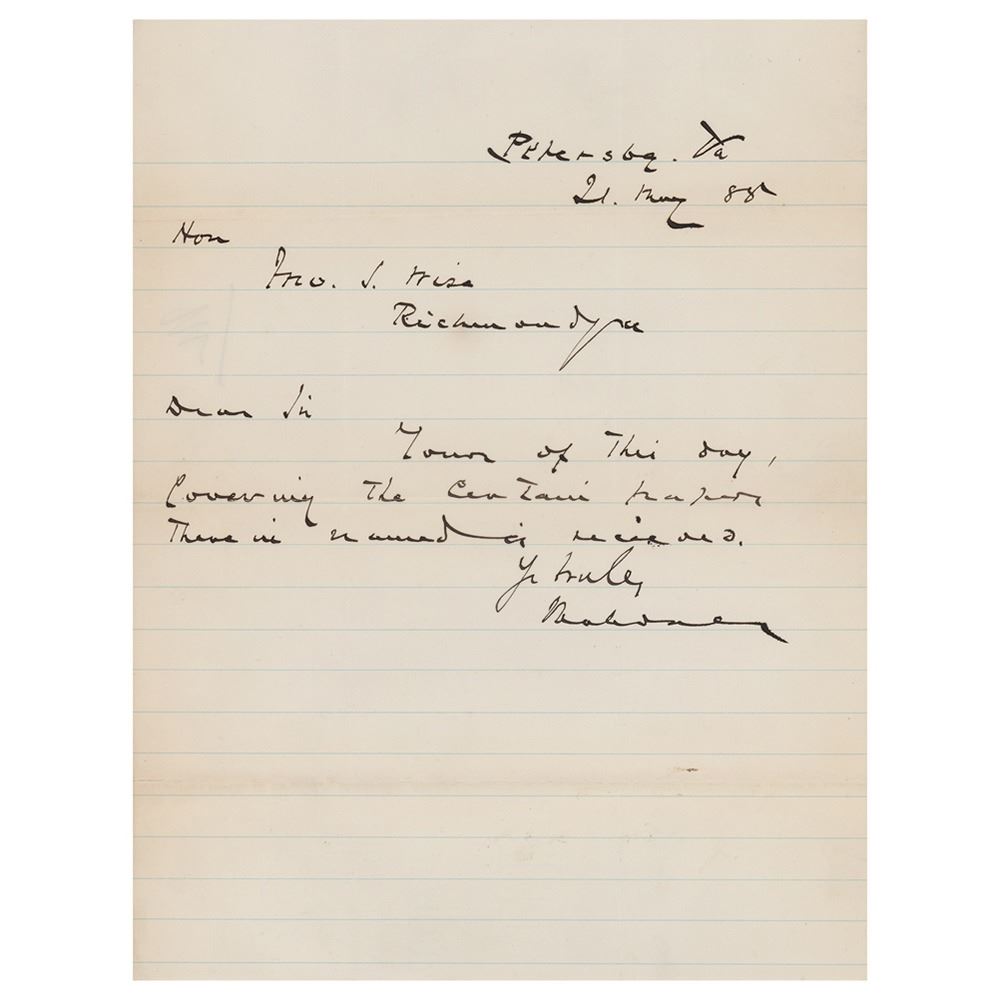 Petersbg. Va
21. May 88
Hon
Jno. S. Wise
Richmond Va
Dear Sir
Yours of this day,
Covering the certain papers
therein named is recieved.
Yr truly,